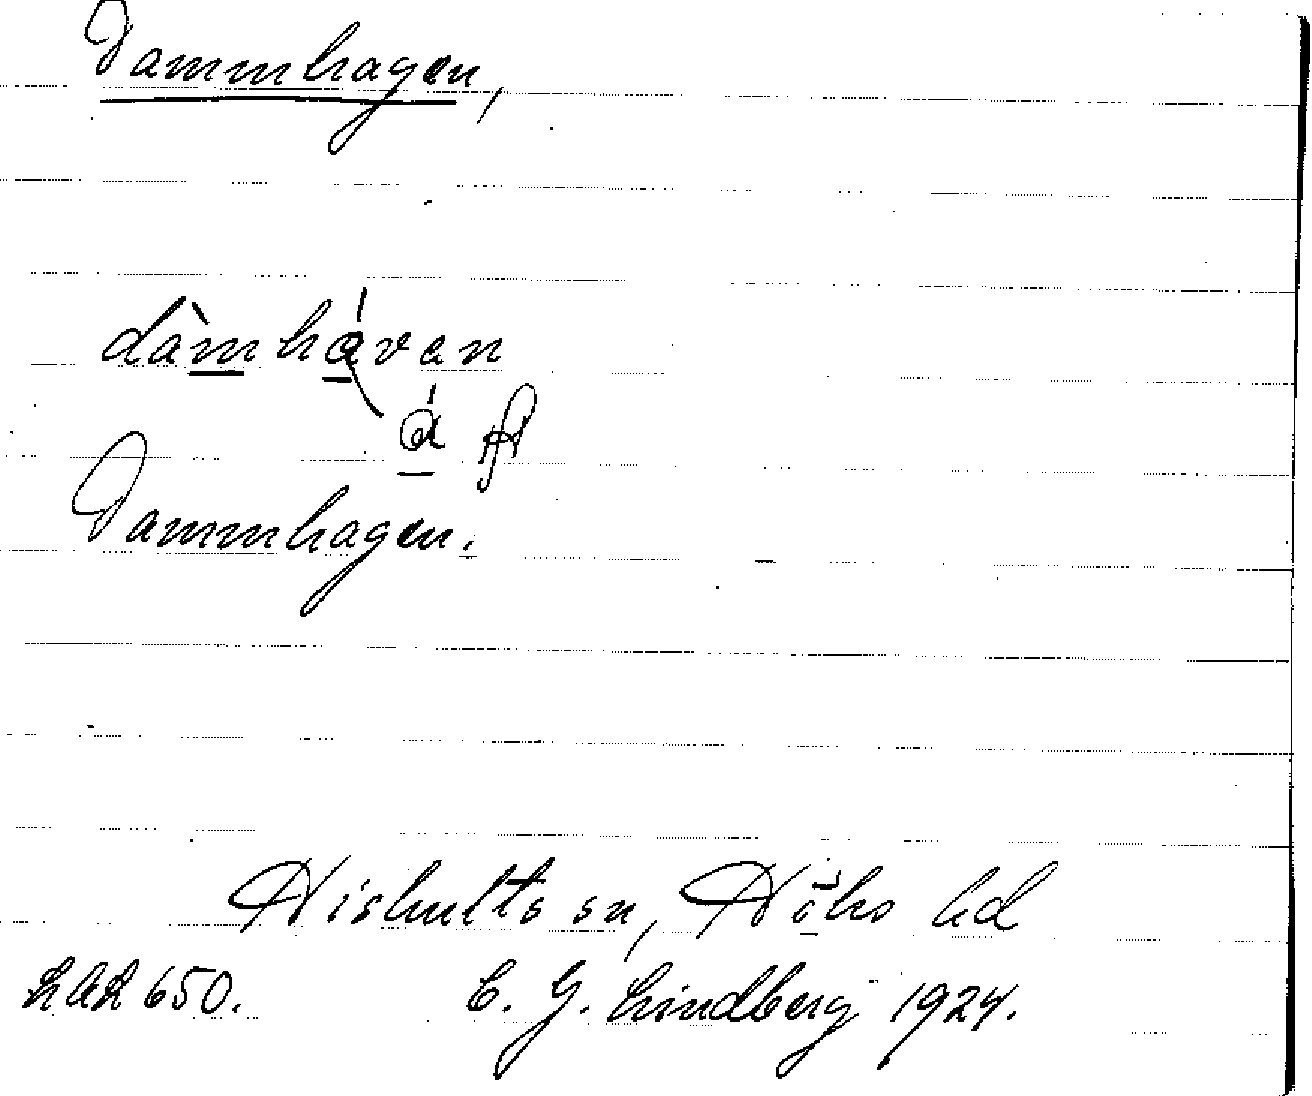 Dammhagen,
dàmhávan
á
Dammhagen.
Hishults sn, Höks hd
LAL 650. C. G. Lindberg 1924.